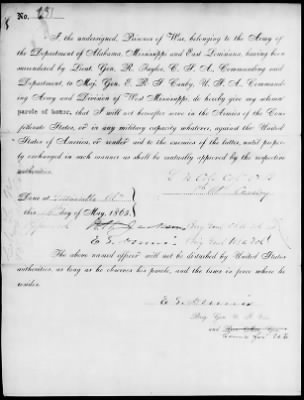 No. 131
I the undersigned, Prisoner of War, belonging to the Army of
the Department of Alabama, Mississippi and East Louisiana, having been
surrendered by Lieut. Gen. R. Taylor, C. S. A., Commanding said
Department, to Maj. Gen. E. R. S. Canby, U. S. A., Command-
ing Army and Division of West Mississippi, do hereby give my solemn
parole of honor, that I will not hereafter serve in the Armies of the Con-
federate States, or in any military capacity whatever, against the United
States of America, or render aid to the enemies of the latter, until proper-
ly exchanged in such manner as shall be mutually approved by the respective
authorities.
Cavalry
Done at Gainesville Ala
this day of May, 1865.
Brig Gen
E S Dennis Brig Gen
The above named officer will not be disturbed by United States
authorities, as long as he observes his parole, and the laws in force where he
resides.
E. S. Dennis
Brig. Gen. U. S. Vols
and